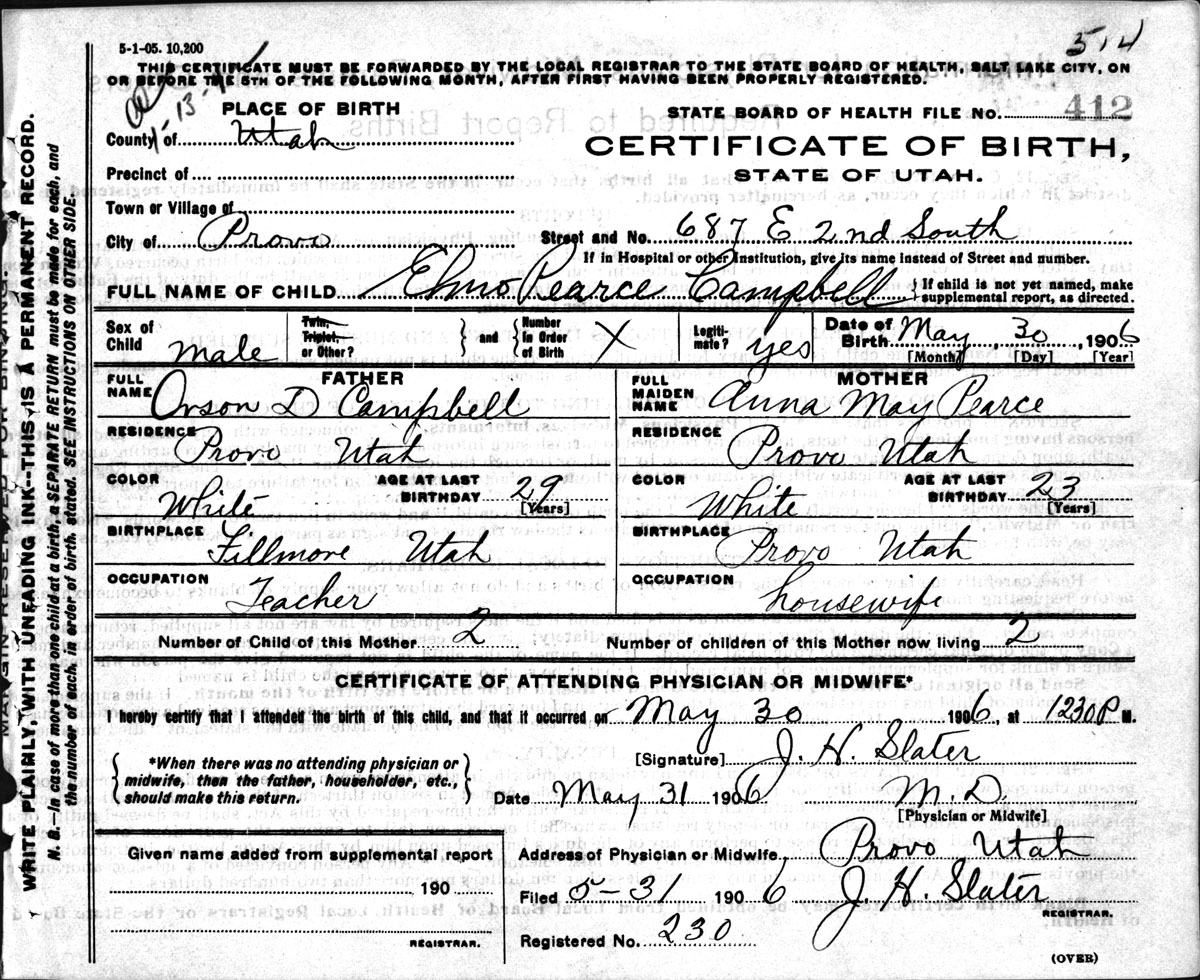 5-1-05. 10,200
514
THIS CERTIFICATE MUST BE FORWARDED BY THE LOCAL REGISTRAR TO THE STATE BOARD OF HEALTH, SALT LAKE CITY, ON
OR BEFORE THE 5TH OF THE FOLLOWING MONTH, AFTER FIRST HAVING BEEN PROPERLY REGISTERED.
PLACE OF BIRTH
STATE BOARD OF HEALTH FILE NO. 412
County of Utah
CERTIFICATE OF BIRTH,
Precinct of
STATE OF UTAH.
Town or Village of
City of Provo Street and No. 687 E 2nd South
If in Hospital or other Institution, give its name instead of Street and number.
FULL NAME OF CHILD Elmo Pearce Campbell { If child is not yet named, make
supplemental report, as directed.
Sex of Child Male Twin, Triplet, or Other? } and { Number in Order of Birth X Legiti-mate? yes Date of Birth May 30, 1906
[Month] [Day] [Year]
FATHER MOTHER
FULL NAME Orson D Campbell FULL MAIDEN NAME Anna May Pearce
RESIDENCE Provo Utah RESIDENCE Provo Utah
COLOR White AGE AT LAST BIRTHDAY 29 [Years] COLOR White AGE AT LAST BIRTHDAY 23 [Years]
BIRTHPLACE Fillmore Utah BIRTHPLACE Provo Utah
OCCUPATION Teacher OCCUPATION housewife
Number of Child of this Mother 2 Number of children of this Mother now living 2
CERTIFICATE OF ATTENDING PHYSICIAN OR MIDWIFE*
I hereby certify that I attended the birth of this child, and that it occurred on May 30 1906, at 1230P M.
{ *When there was no attending physician or
midwife, then the father, householder, etc.,
should make this return. }
[Signature] J. H. Slater
Date May 31 1906 M.D.
[Physician or Midwife]
Given name added from supplemental report
190
REGISTRAR.
Address of Physician or Midwife, Provo Utah
Filed 5-31 1906 J. H. Slater
REGISTRAR.
Registered No. 230
(OVER)
MARGIN RESERVED FOR BINDING
WRITE PLAINLY, WITH UNFADING INK--THIS IS A PERMANENT RECORD.
N. B.--In case of more than one child at a birth, a SEPARATE RETURN must be made for each, and
the number of each, in order of birth, stated. SEE INSTRUCTIONS ON OTHER SIDE.